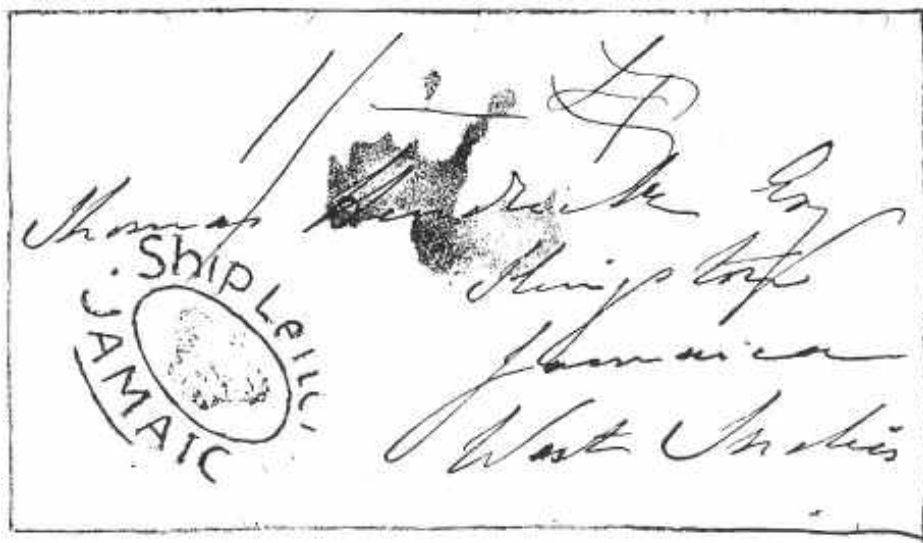 Thomas Kendrick Esq
Kingston
Jamaica
West Indies
Ship Lette
JAMAIC